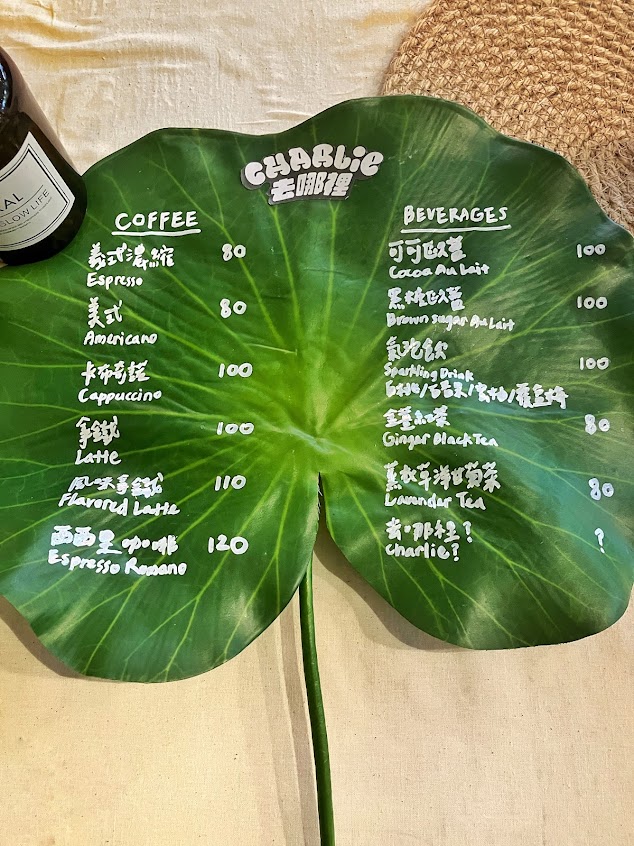 AL
SLOW LIFE
CHARLiE
去哪裡
COFFEE
義式濃縮 80
Espresso
美式 80
Americano
卡布奇諾 100
Cappuccino
拿鐵 100
Latte
風味拿鐵 110
Flavored Latte
西西里咖啡 120
Espresso Romano
BEVERAGES
可可歐蕾 100
Cocoa Au Lait
黑糖歐蕾 100
Brown sugar Au Lait
氣泡飲 100
Sparkling Drink
薑紅茶 80
Ginger Black Tea
薰衣草洋甘菊茶 80
Lavender Tea
去哪裡? ?
Charlie?